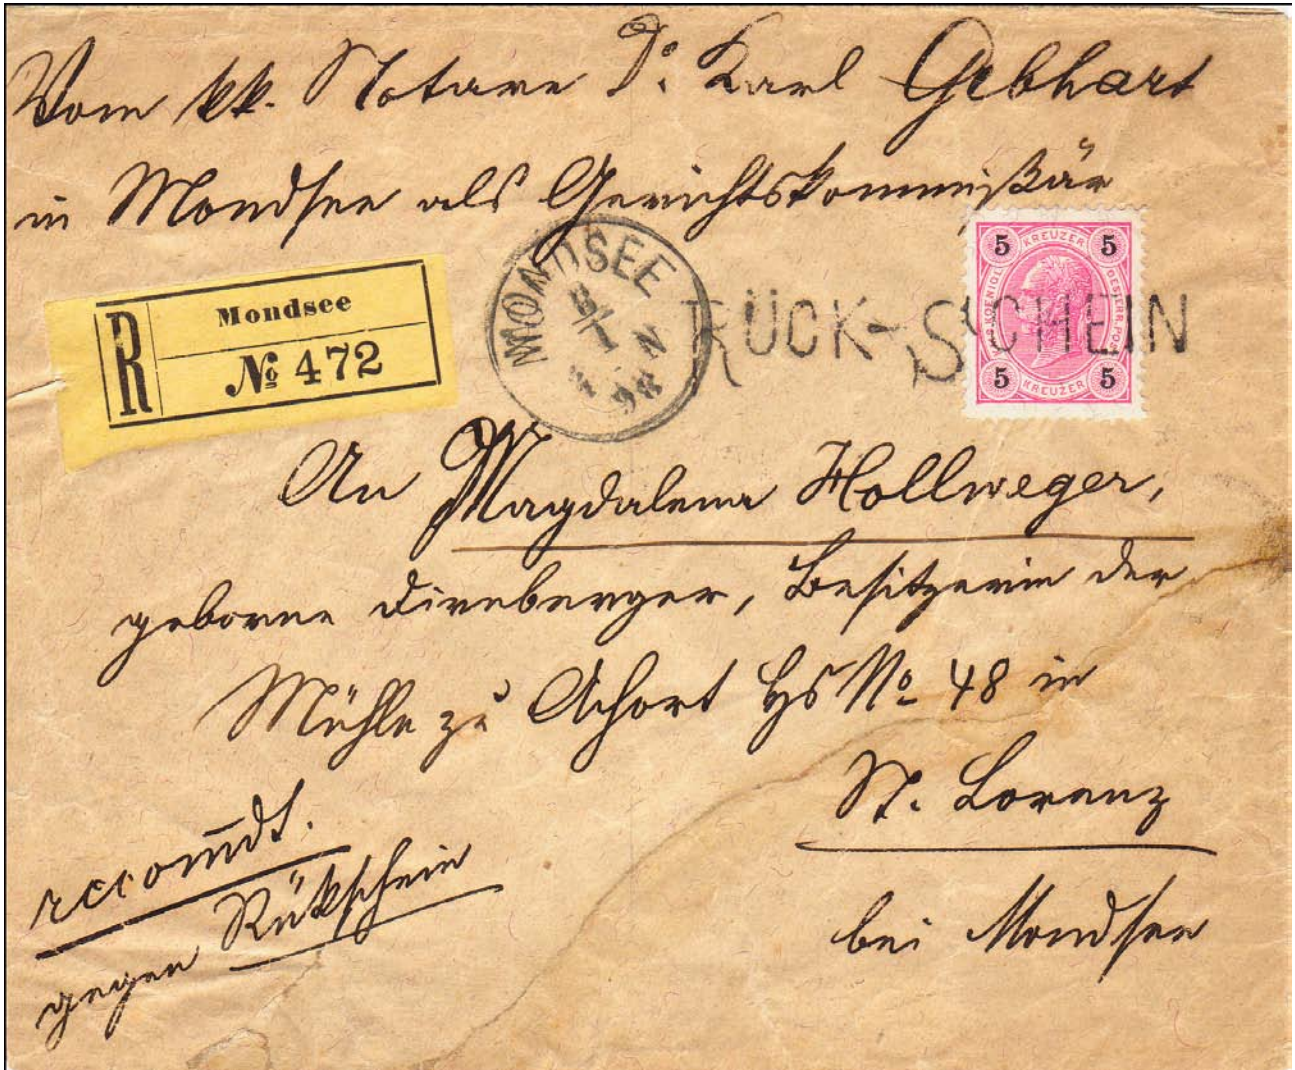 Vom kk. Notare Dr. Karl Gebhart
in Mondsee als Gerichtskommißär
R Mondsee
№ 472
MONDSEE
98
RÜCK-SCHEIN
5 KREUZER 5
5 KREUZER 5
An Magdalena Hollweger,
geborne Dirnberger, Besitzerin der
Mühle zu Achort Hs No 48 in
St. Lorenz
bei Mondsee
recom̅dt.
gegen Rükschein